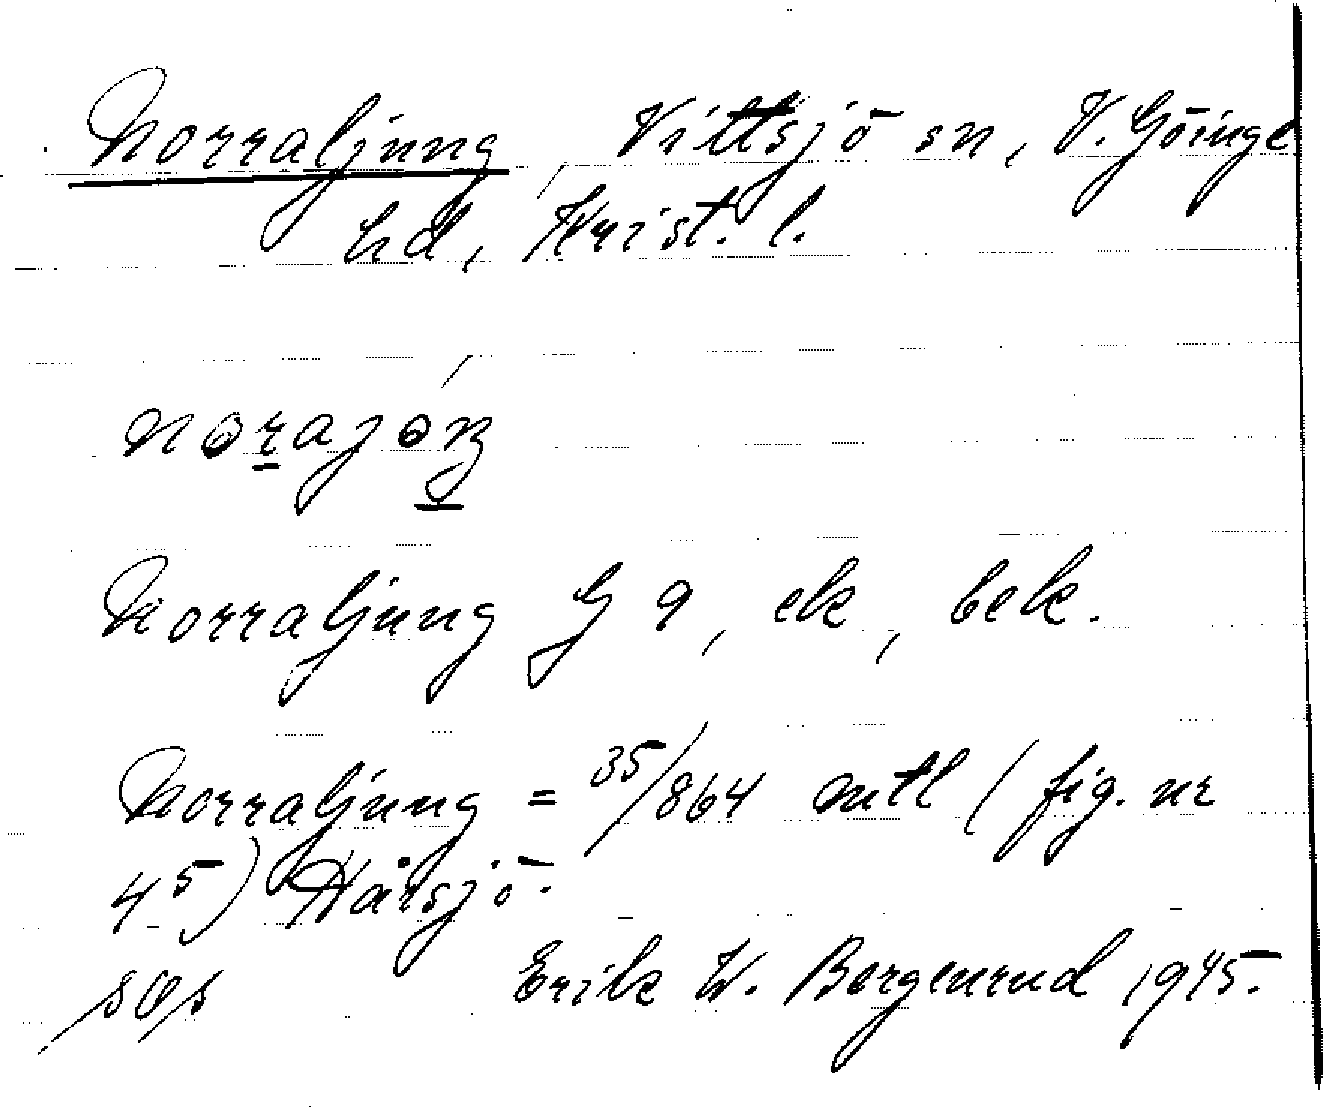 Norraljung, Vittsjö sn, V. Göinge
hd, Krist. l.
Norraljung G 9, ek, bek.
Norraljung = 35/864 mtl (fig. nr
45) Hårsjö.
Erik W. Bergenrud 1945.